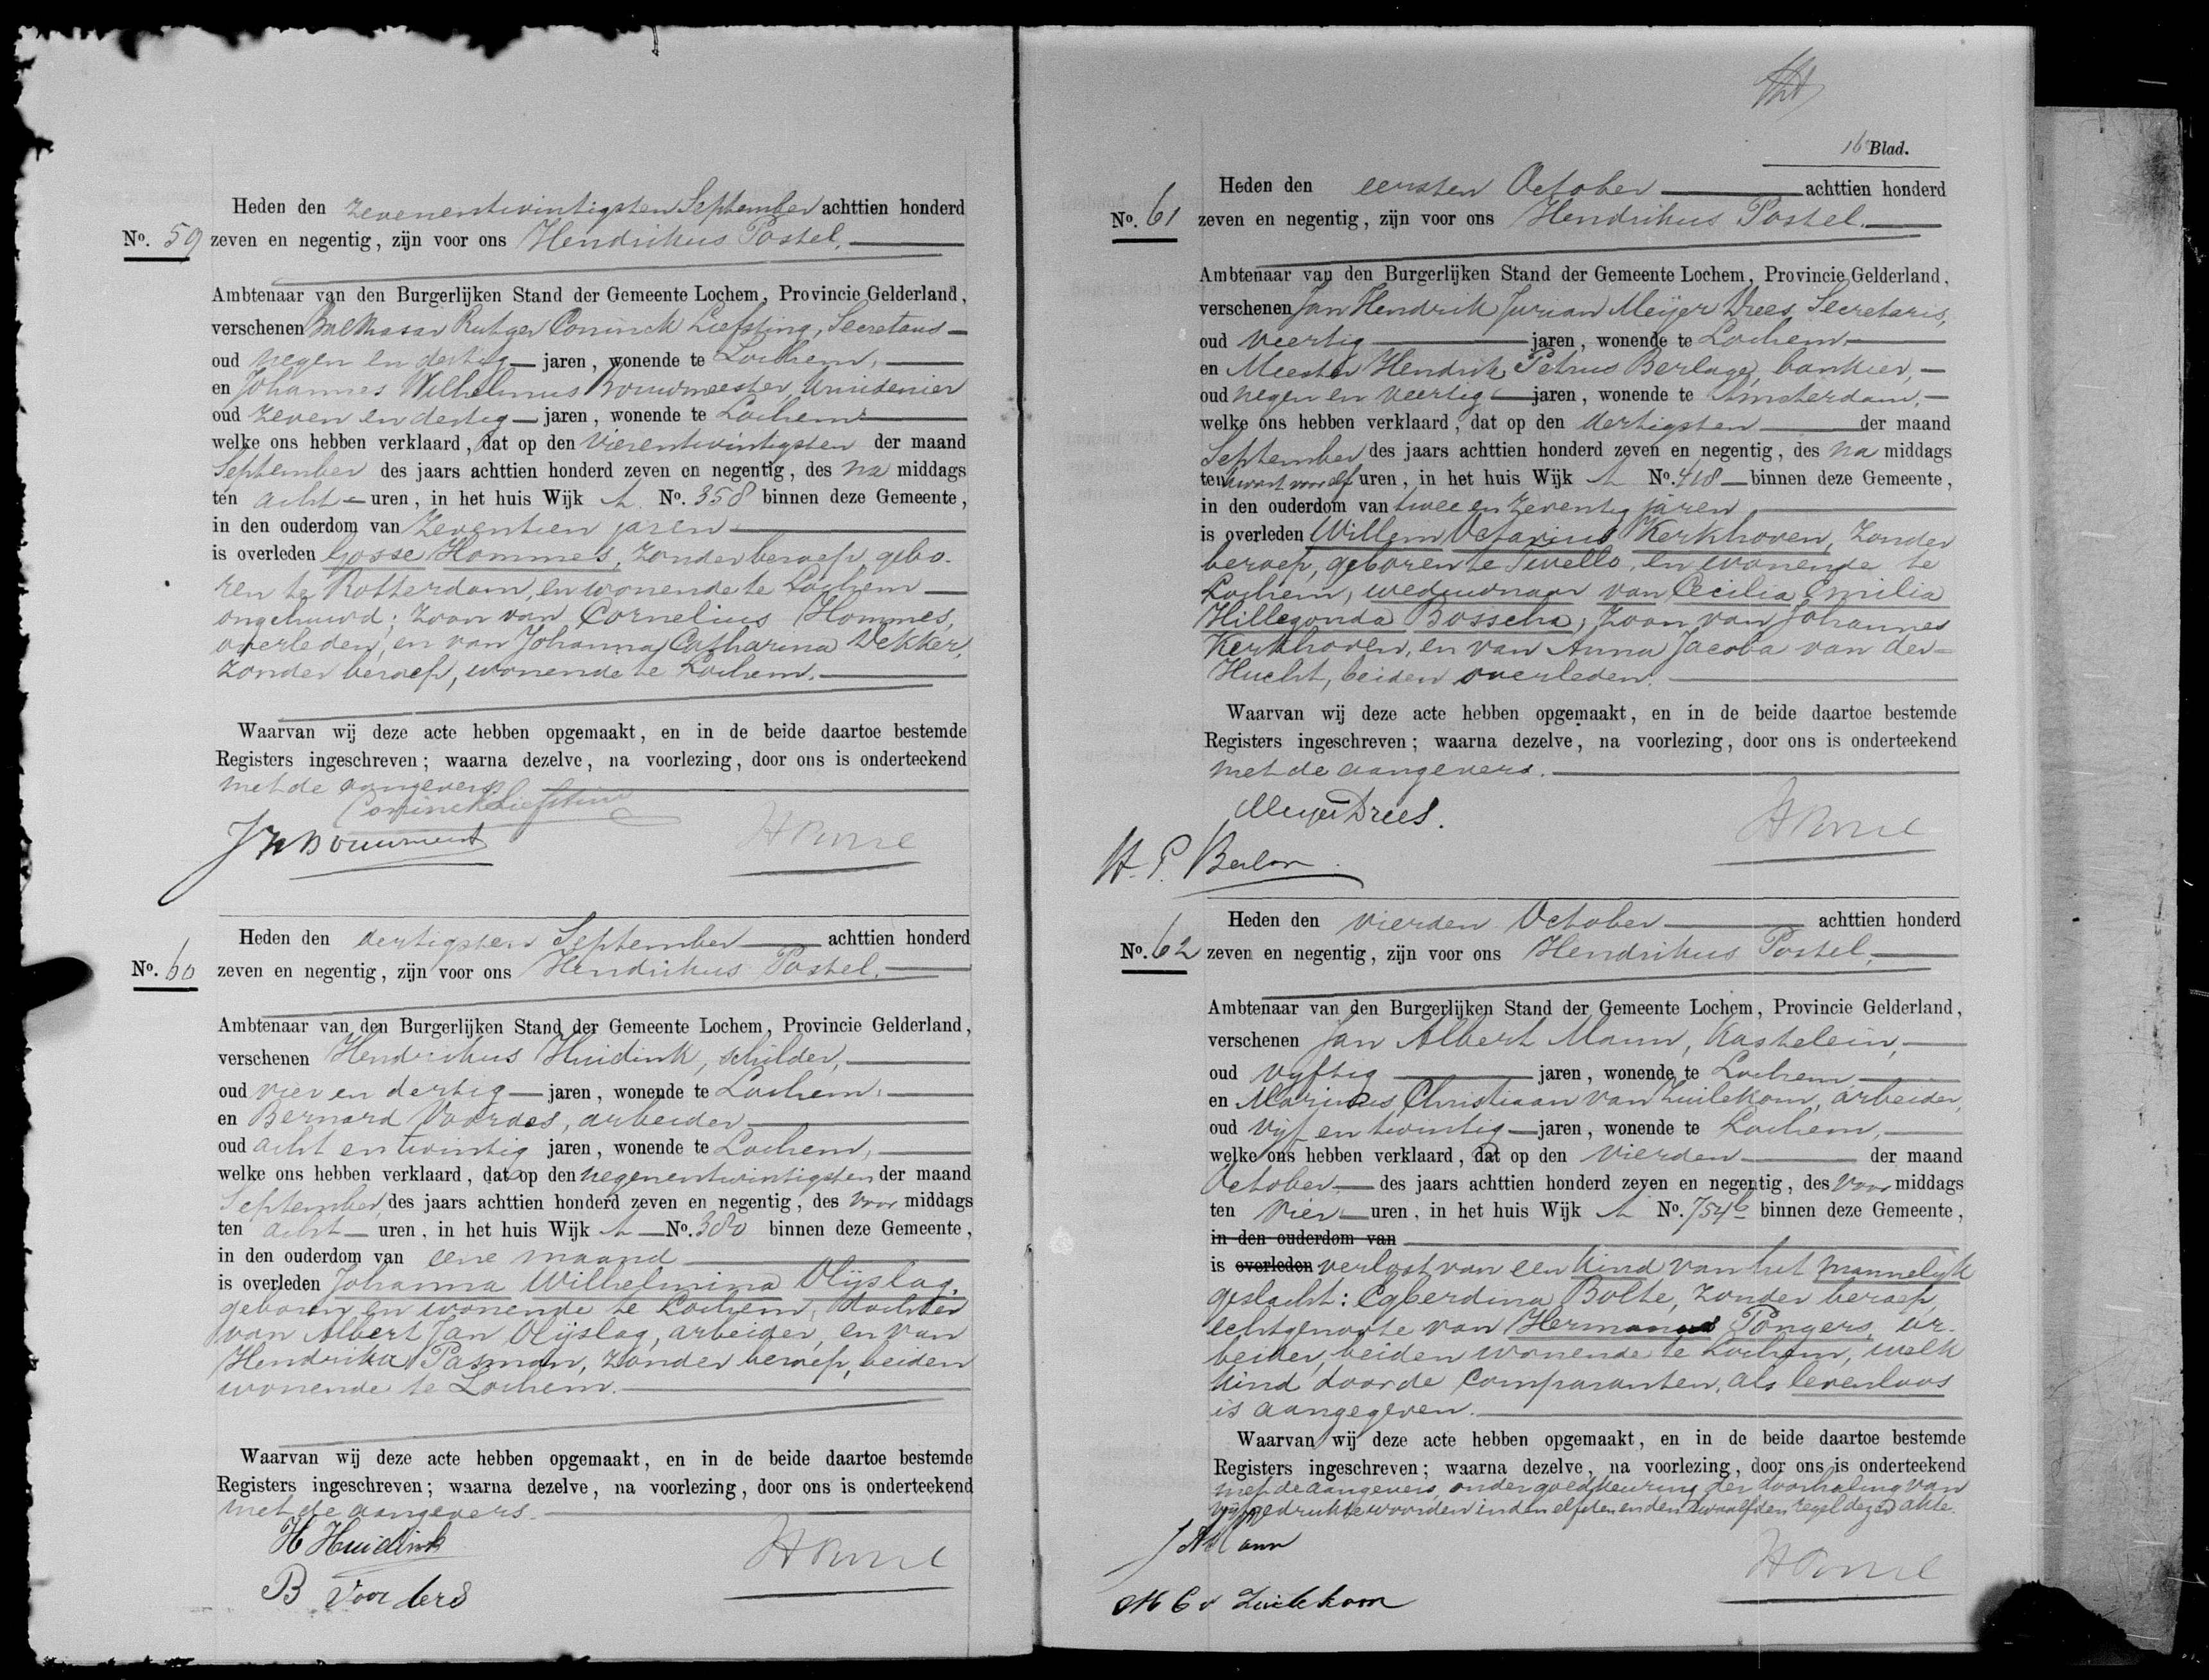 Heden den zevenentwintigsten September achttien honderd
No. 59 zeven en negentig, zijn voor ons Hendrikus Postel,
Ambtenaar van den Burgerlijken Stand der Gemeente Lochem, Provincie Gelderland,
verschenen Balthasar Rutger Coninck Liefsting, Secretaris
oud negen en dertig jaren, wonende te Lochem,
en Johannes Wilhelmus Bouwmeester, kruidenier
oud zeven en dertig jaren, wonende te Lochem
welke ons hebben verklaard, dat op den vierentwintigsten der maand
September des jaars achttien honderd zeven en negentig, des na middags
ten acht uren, in het huis Wijk A No. 358 binnen deze Gemeente,
in den ouderdom van zeventien jaren
is overleden Gosse Hommes, zonder beroep, gebo-
ren te Rotterdam, en wonende te Lochem
ongehuwd; zoon van Cornelius Hommes,
overleden, en van Johanna Catharina Dekker,
zonder beroep, wonende te Lochem.
Waarvan wij deze acte hebben opgemaakt, en in de beide daartoe bestemde
Registers ingeschreven; waarna dezelve, na voorlezing, door ons is onderteekend
met de aangevers.
Coninck Liefsting
HPostel
Heden den dertigsten September achttien honderd
No. 60 zeven en negentig, zijn voor ons Hendrikus Postel,
Ambtenaar van den Burgerlijken Stand der Gemeente Lochem, Provincie Gelderland,
verschenen Hendrikus Huidink, schilder,
oud vier en dertig jaren, wonende te Lochem,
en Bernard Voordes, arbeider
oud acht en twintig jaren, wonende te Lochem,
welke ons hebben verklaard, dat op den negenentwintigsten der maand
September des jaars achttien honderd zeven en negentig, des voor middags
ten acht uren, in het huis Wijk A No. 380 binnen deze Gemeente,
in den ouderdom van eene maand
is overleden Johanna Wilhelmina Olijslag,
geboren en wonende te Lochem, dochter
van Albert Jan Olijslag, arbeider, en van
Hendrika Pasman, zonder beroep, beiden
wonende te Lochem.
Waarvan wij deze acte hebben opgemaakt, en in de beide daartoe bestemde
Registers ingeschreven; waarna dezelve, na voorlezing, door ons is onderteekend
met de aangevers.
H Huidink
HPostel
B Voorders
16e Blad.
Heden den eersten October achttien honderd
No. 61 zeven en negentig, zijn voor ons Hendrikus Postel.
Ambtenaar van den Burgerlijken Stand der Gemeente Lochem, Provincie Gelderland,
verschenen Jan Hendrik Jurian Meijer Drees, Secretaris,
oud veertig jaren, wonende te Lochem
en Meester Hendrik Petrus Berlage, bankier,
oud negen en veertig jaren, wonende te Amsterdam,
welke ons hebben verklaard, dat op den dertigsten der maand
September des jaars achttien honderd zeven en negentig, des na middags
ten kwart voor elf uren, in het huis Wijk A No. 418 binnen deze Gemeente,
in den ouderdom van twee en zeventig jaren
is overleden Willem Octavius Kerkhoven, zonder
beroep, geboren te Twello, en wonende te
Lochem, weduwnaar van Cecilia Emilia
Hillegonda Bosscha, zoon van Johannes
Kerkhoven, en van Anna Jacoba van der
Hucht, beiden overleden.
Waarvan wij deze acte hebben opgemaakt, en in de beide daartoe bestemde
Registers ingeschreven; waarna dezelve, na voorlezing, door ons is onderteekend
met de aangevers.
Meijer Drees.
HPostel
H. P. Berlage
Heden den vierden October achttien honderd
No. 62 zeven en negentig, zijn voor ons Hendrikus Postel,
Ambtenaar van den Burgerlijken Stand der Gemeente Lochem, Provincie Gelderland,
verschenen Jan Albert Mann, kastelein,
oud vyftig jaren, wonende te Lochem
en Marinus Christiaan van Zuilekom, arbeider,
oud vyf en twintig jaren, wonende te Lochem,
welke ons hebben verklaard, dat op den vierden der maand
October des jaars achttien honderd zeven en negentig, des voor middags
ten vier uren, in het huis Wijk A No. 754b binnen deze Gemeente,
in den ouderdom van
is overleden verlost van een kind van het mannelijk
geslacht: Egberdina Bolte, zonder beroep,
echtgenoote van Hermanus Pongers, ar-
beider, beiden wonende te Lochem, welk
kind door de Comparanten, als levenloos
is aangegeven.
Waarvan wij deze acte hebben opgemaakt, en in de beide daartoe bestemde
Registers ingeschreven; waarna dezelve, na voorlezing, door ons is onderteekend
met de aangevers, onder goedkeuring der doorhaling van
vijf gedrukte woorden in den elfden en den twaalfden regel dezer akte.
J A Mann
HPostel
M C v Zuilekom